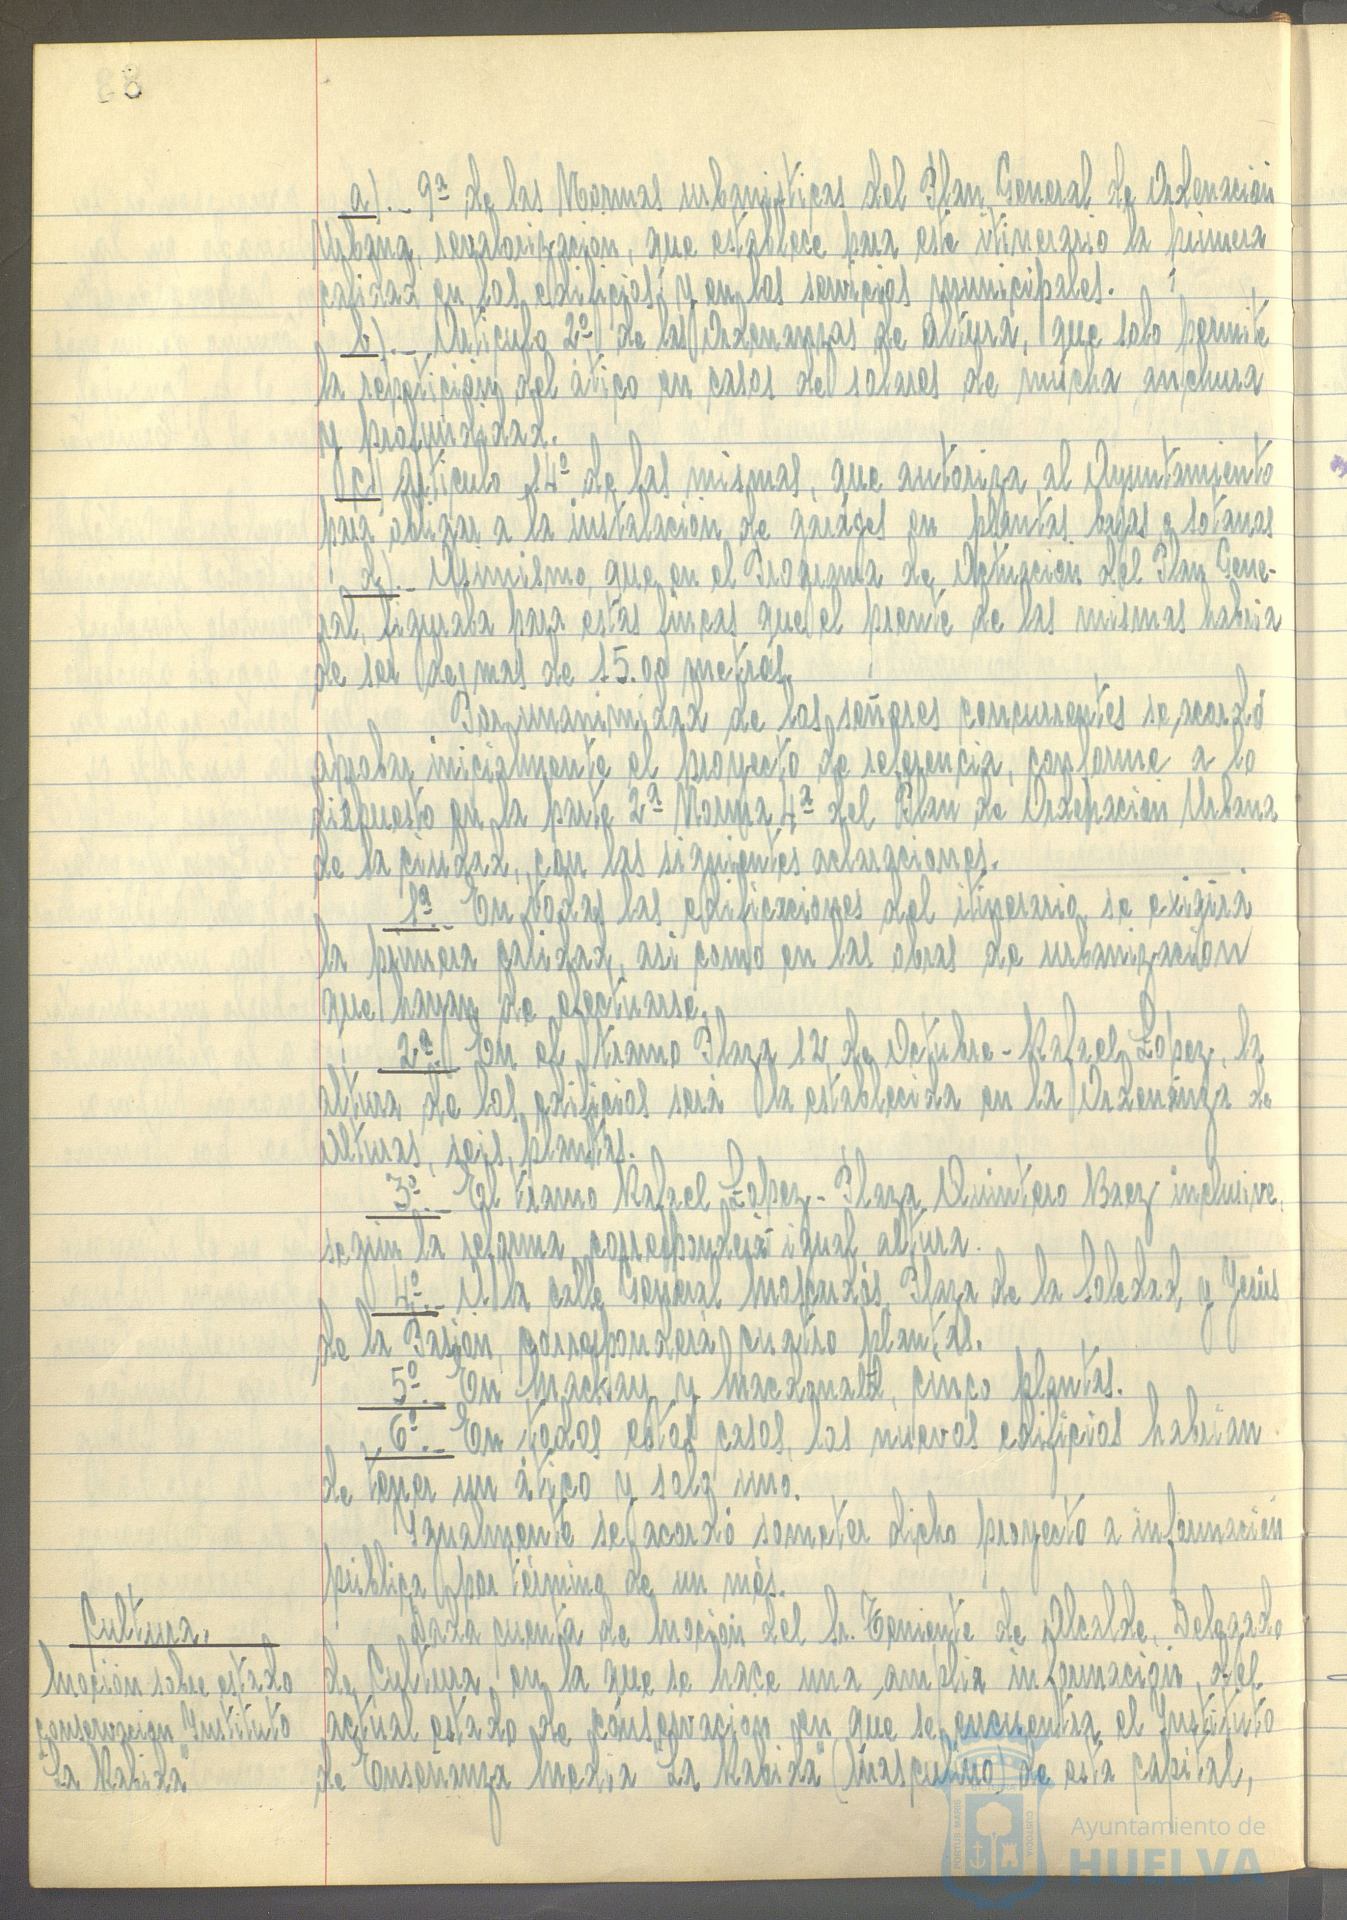 a).- 9ª de las Normas urbanisticas del Plan General de Ordenación
Urbana, revalorizacion, que establece para este itinerario la primera
calidad en los edificios, y en los servicios municipales.
b).- Articulo 2º de las Ordenanzas de altura, que solo permite
la repeticion del ático en casos de solares de mucha anchura
y profundidad.
c) Articulo 14º de las mismas, que autoriza al Ayuntamiento
para obligar a la instalación de garages en plantas bajas o sotanos
d).- Asimismo, que en el Programa de Actuacion del Plan Gene-
ral, figuraba para estas fincas que el frente de las mismas habria
de ser de mas de 15.00 metros.
Por unanimidad de los señores concurrentes se acordó
aprobar inicialmente el proyecto de referencia, conforme a lo
dispuesto en la parte 2ª Norma 4ª del Plan de Ordenación Urbana
de la ciudad, con las siguientes aclaraciones.
1ª.- En todas las edificaciones del itinerario se exigirá
la primera calidad, asi como en las obras de urbanización
que hayan de efectuarse.
2ª.- En el tramo Plaza 12 de Octubre - Rafael López, la
altura de los edificios será la establecida en la Ordenanza de
Alturas, seis plantas.
3º.- El tramo Rafael López - Plaza Quintero Baez inclusive,
según la reforma corresponderá igual altura.
4º.- A la calle General Moscardós, Plaza de la Soledad, y Jesús
de la Pasión, corresponderá cuatro plantas.
5º.- En Mackay y Macdonald, cinco plantas.
6º.- En todos estos casos, los nuevos edificios habrian
de tener un ático y solo uno.
Igualmente se acordó someter dicho proyecto a información
pública por término de un més.
Cultura.
Moción sobre estado
conservacion Instituto
"La Rabida"
Dada cuenta de Moción del Sr. Teniente de Alcalde, Delegado
de Cultura, en la que se hace una amplia información, del
actual estado de conservacion en que se encuentra el Instituto
de Enseñanza Media "La Rabida" (Masculino) de esta capital,
PORTUS MARIS
CUSTODIA
Ayuntamiento de
HUELVA